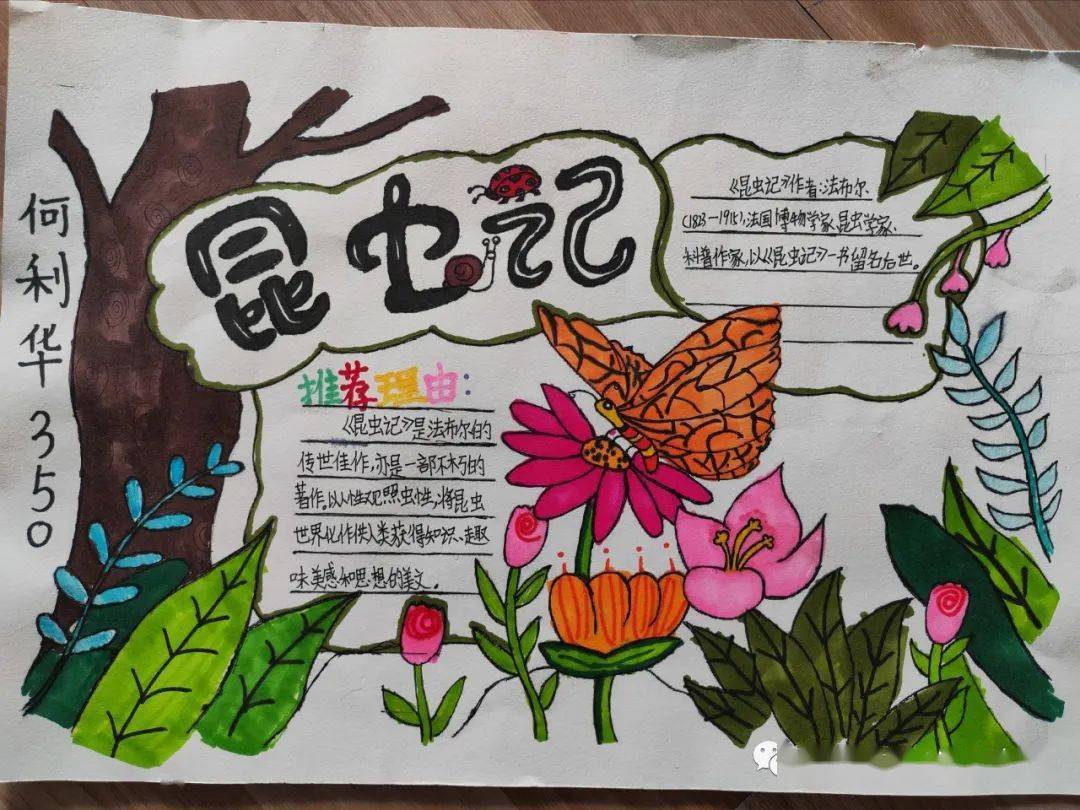 昆虫记
何利华 350
《昆虫记》作者:法布尔、
(1823—1915),法国博物学家、昆虫学家、
科普作家,以《昆虫记》一书留名后世。
推荐理由:
《昆虫记》是法布尔的
传世佳作,亦是一部不朽的
著作。以人性观照虫性,将昆虫
世界化作供人类获得知识、趣
味、美感和思想的美文。